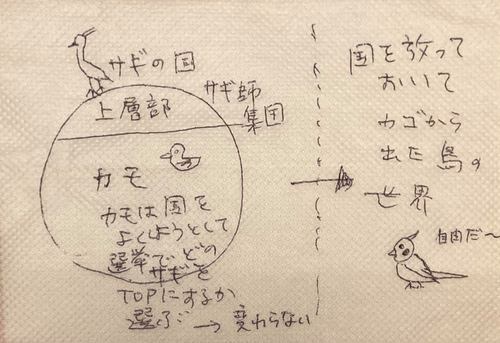 サギの国
上層部
サギ師
集団
カモ
カモは国を
よくしようとして
選挙でどの
サギを
TOPにするか
選ぶ → 変わらない
国を放って
おいて
カゴから
出た鳥の
世界
自由だ〜